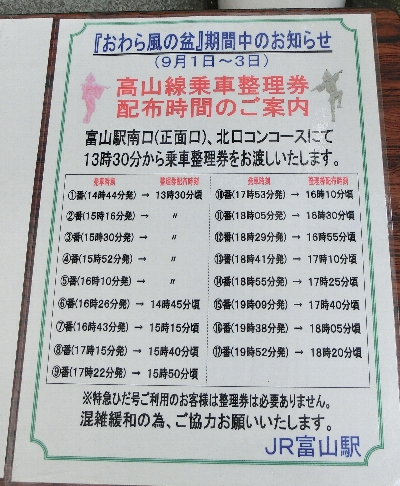 『おわら風の盆』期間中のお知らせ
(9月1日～3日)
高山線乗車整理券
配布時間のご案内
富山駅南口(正面口)、北口コンコースにて
13時30分から乗車整理券をお渡しいたします。
発車時刻 整理券配布時刻
①番(14時44分発) → 13時30分頃
②番(15時16分発) → 〃
③番(15時30分発) → 〃
④番(15時52分発) → 〃
⑤番(16時10分発) → 〃
⑥番(16時26分発) → 14時45分頃
⑦番(16時43分発) → 15時15分頃
⑧番(17時15分発) → 15時40分頃
⑨番(17時22分発) → 15時50分頃
発車時刻 整理券配布時刻
⑩番(17時53分発) → 16時10分頃
⑪番(18時05分発) → 16時30分頃
⑫番(18時29分発) → 16時55分頃
⑬番(18時41分発) → 17時10分頃
⑭番(18時55分発) → 17時25分頃
⑮番(19時09分発) → 17時40分頃
⑯番(19時38分発) → 18時05分頃
⑰番(19時52分発) → 18時20分頃
※特急ひだ号ご利用のお客様は整理券は必要ありません。
混雑緩和の為、ご協力お願いいたします。
JR富山駅